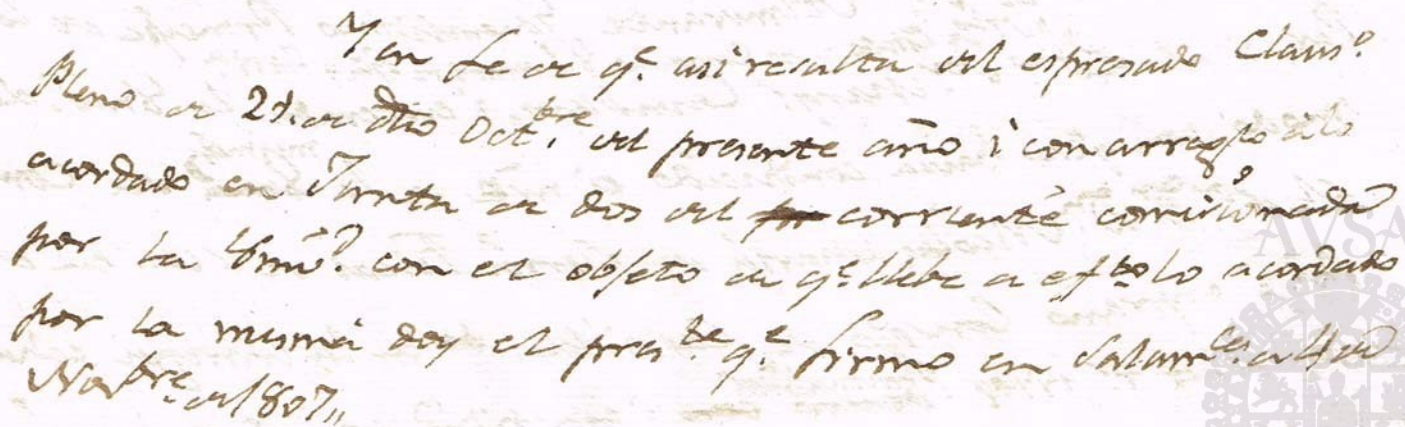 Y en fe de q.e asi resulta del espresado Claus.o
Pleno de 21 de dho Oct.bre del presente año i con arreglo à lo
acordado en Junta de dos del corriente comisionada
por la Univ.d con el objeto de q.e llebe a ef.to lo acordado
por la misma doy el pres.te q.e firmo en Salam.ca a 4 de
Nov.bre de 1807,,
AVSA